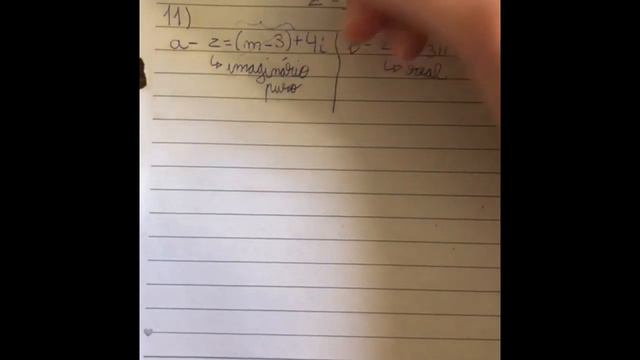 11)
a- z=(m-3)+4i
↳ imaginário
puro
↳ real